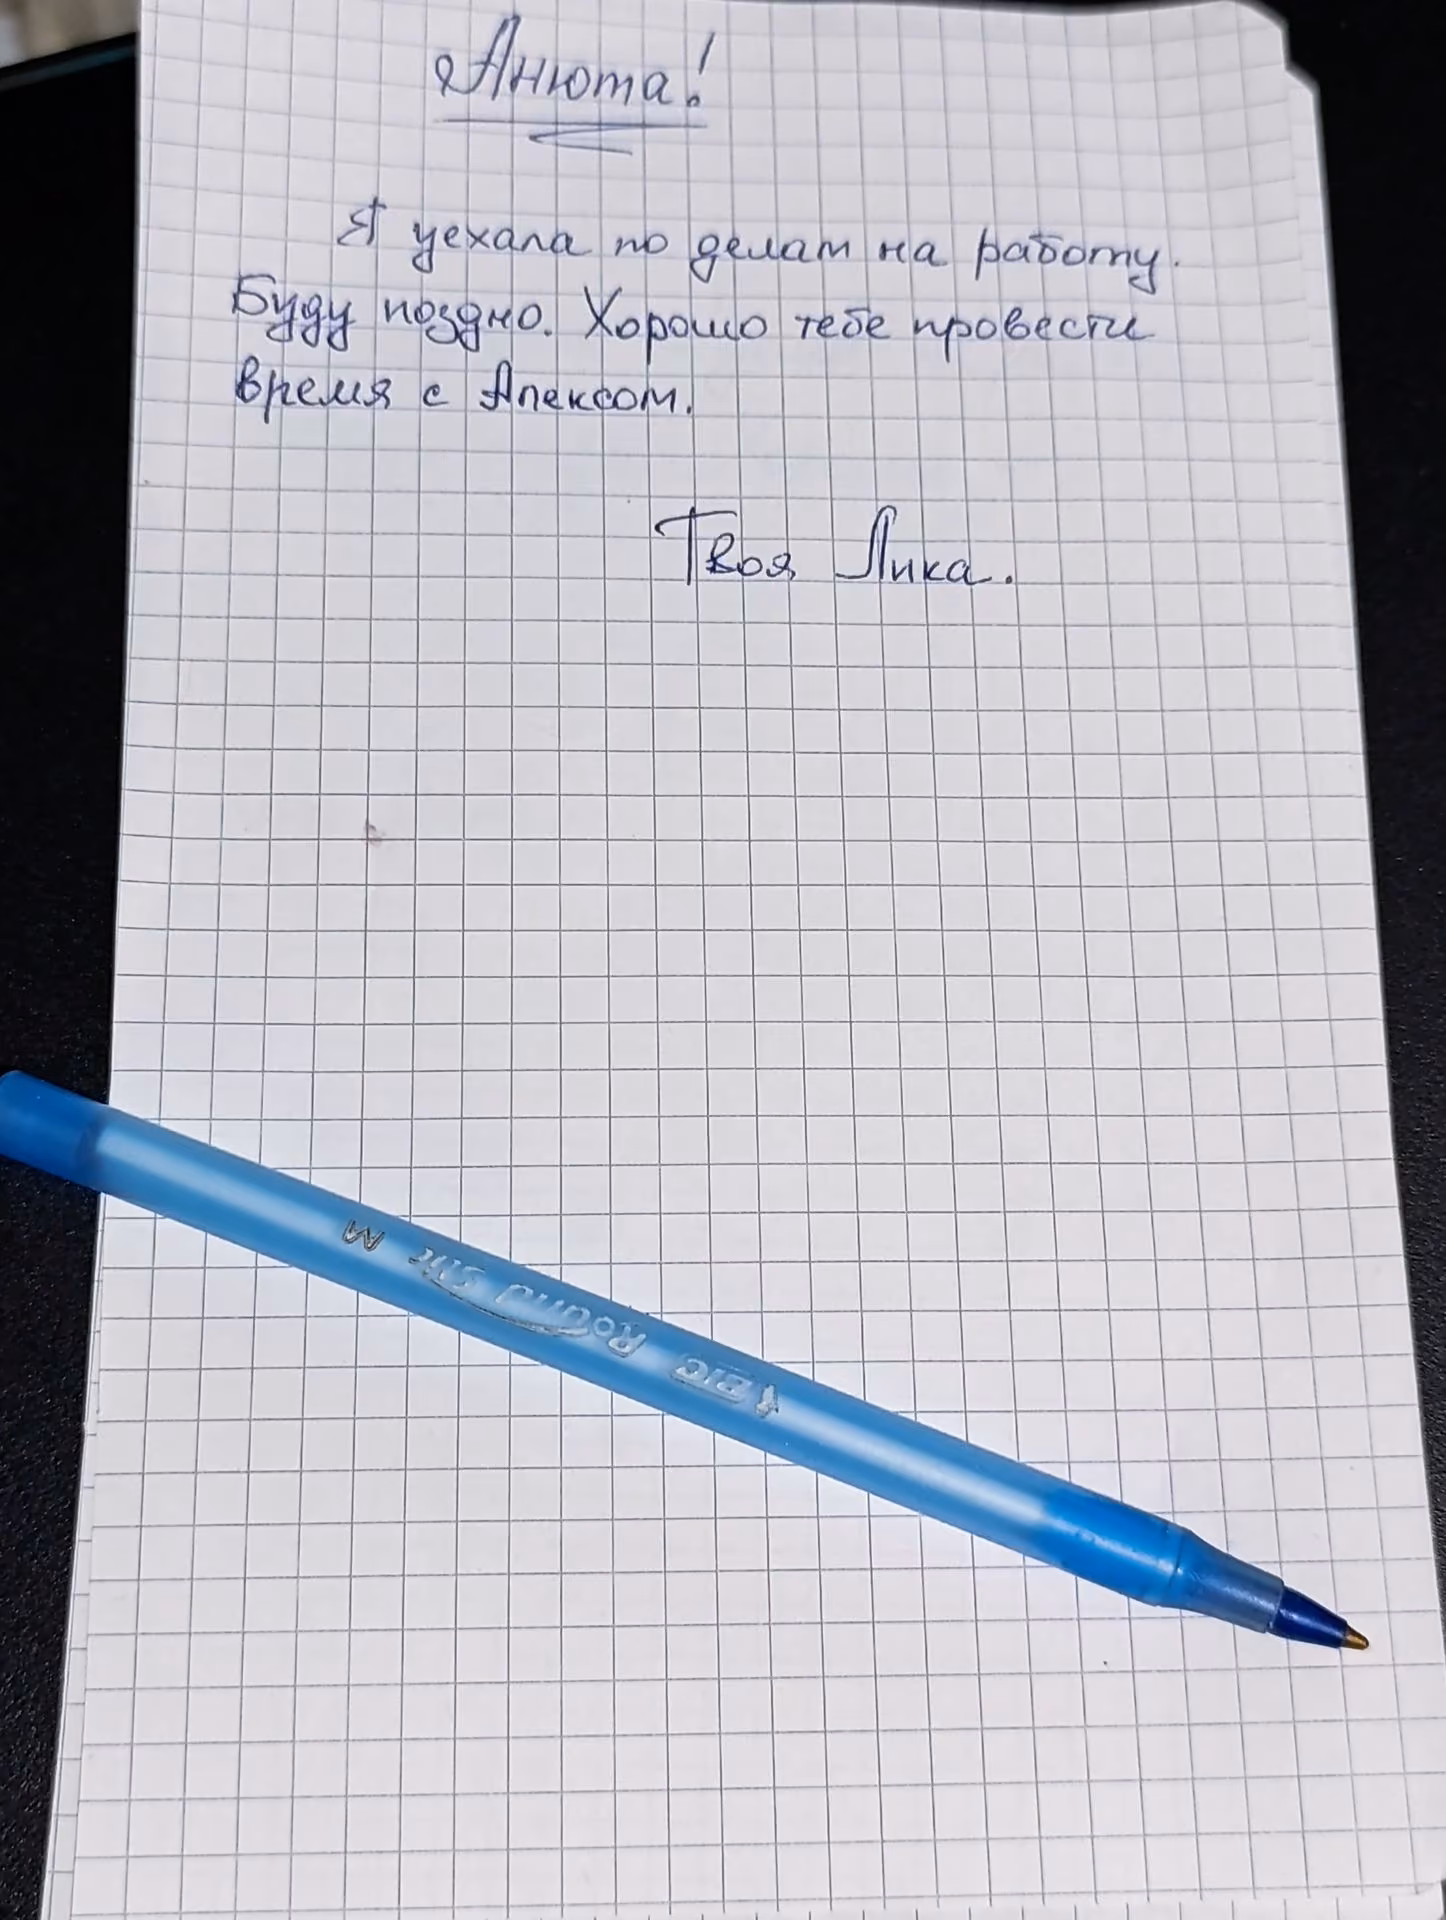 Анюта!
Я уехала по делам на работу.
Буду поздно. Хорошо тебе провести
время с Алексом.
Твоя Лика.
BIC Round Stic M